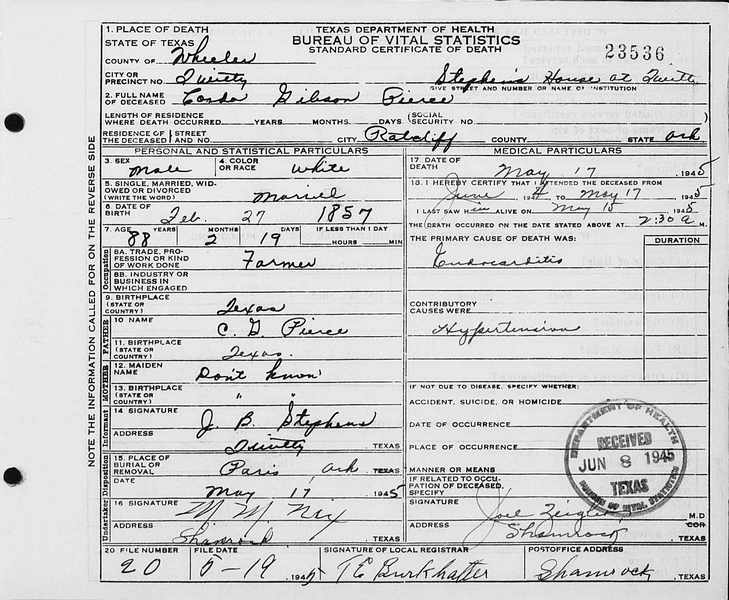 TEXAS DEPARTMENT OF HEALTH
BUREAU OF VITAL STATISTICS
STANDARD CERTIFICATE OF DEATH
23536
NOTE THE INFORMATION CALLED FOR ON THE REVERSE SIDE
1. PLACE OF DEATH
STATE OF TEXAS
COUNTY OF Wheeler
CITY OR PRECINCT NO. Stephens House at
GIVE STREET AND NUMBER OR NAME OF INSTITUTION
2. FULL NAME OF DECEASED Gibson Pierce
LENGTH OF RESIDENCE WHERE DEATH OCCURRED YEARS MONTHS DAYS (SOCIAL SECURITY NO.
RESIDENCE OF THE DECEASED STREET AND NO. CITY Ratcliff COUNTY STATE Ark
PERSONAL AND STATISTICAL PARTICULARS
3. SEX Male
4. COLOR OR RACE White
5. SINGLE, MARRIED, WIDOWED OR DIVORCED (WRITE THE WORD)
6. DATE OF BIRTH Feb. 27 1857
7. AGE 88 YEARS 2 MONTHS 19 DAYS IF LESS THAN 1 DAY HOURS MIN
Occupation
8A. TRADE, PROFESSION OR KIND OF WORK DONE Farmer
8B. INDUSTRY OR BUSINESS IN WHICH ENGAGED
9. BIRTHPLACE (STATE OR COUNTRY) Texas
FATHER
10 NAME C. G. Pierce
11. BIRTHPLACE (STATE OR COUNTRY) Texas.
MOTHER
12. MAIDEN NAME Don't know
13. BIRTHPLACE (STATE OR COUNTRY) " "
Informant
14 SIGNATURE J. B. Stephens
ADDRESS TEXAS
Disposition
15. PLACE OF BURIAL OR REMOVAL Paris Ark TEXAS
DATE May 17 1945
Undertaker
16 SIGNATURE
ADDRESS Shamrock TEXAS
MEDICAL PARTICULARS
17. DATE OF DEATH May 17 1945
18. I HEREBY CERTIFY THAT I ATTENDED THE DECEASED FROM
June 194 TO May 17 1945
I LAST SAW him ALIVE ON May 15 1945
THE DEATH OCCURRED ON THE DATE STATED ABOVE AT 2:30 a M.
THE PRIMARY CAUSE OF DEATH WAS: DURATION
Endocarditis
CONTRIBUTORY CAUSES WERE:
Hypertension
IF NOT DUE TO DISEASE, SPECIFY WHETHER:
ACCIDENT, SUICIDE, OR HOMICIDE
DATE OF OCCURRENCE
PLACE OF OCCURRENCE
MANNER OR MEANS
IF RELATED TO OCCUPATION OF DECEASED, SPECIFY
SIGNATURE Joel Zeigler M.D
ADDRESS Shamrock TEXAS
DEPARTMENT OF HEALTH
RECEIVED
JUN 8 1945
TEXAS
BUREAU OF VITAL STATISTICS
20 FILE NUMBER 20
FILE DATE 5-19 1945
SIGNATURE OF LOCAL REGISTRAR T E Burkhalter
POSTOFFICE ADDRESS Shamrock, TEXAS